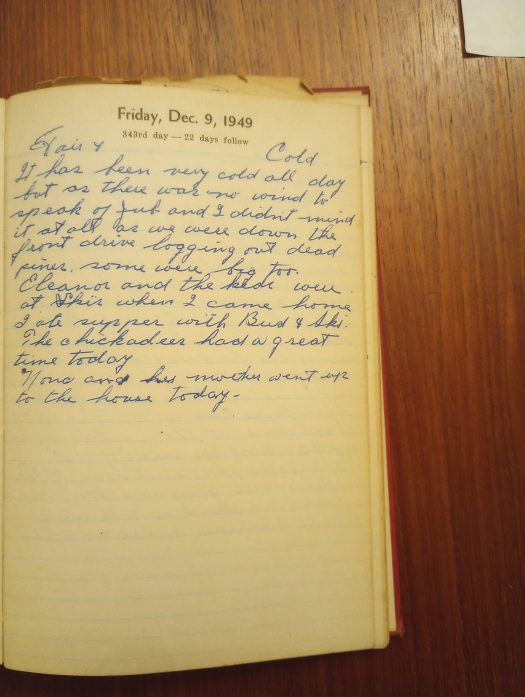 Friday, Dec. 9, 1949
343rd day — 22 days follow
Fair & Cold
It has been very cold all day
but as there was no wind to
speak of Jub and I didn't mind
it at all as we were down the
front drive logging out dead
pines. some were big too.
Eleanor and the kids were
at Skis when I came home
I ate supper with Bud & Ski.
The chickadees had a great
time today
Nona and her mother went up
to the house today-